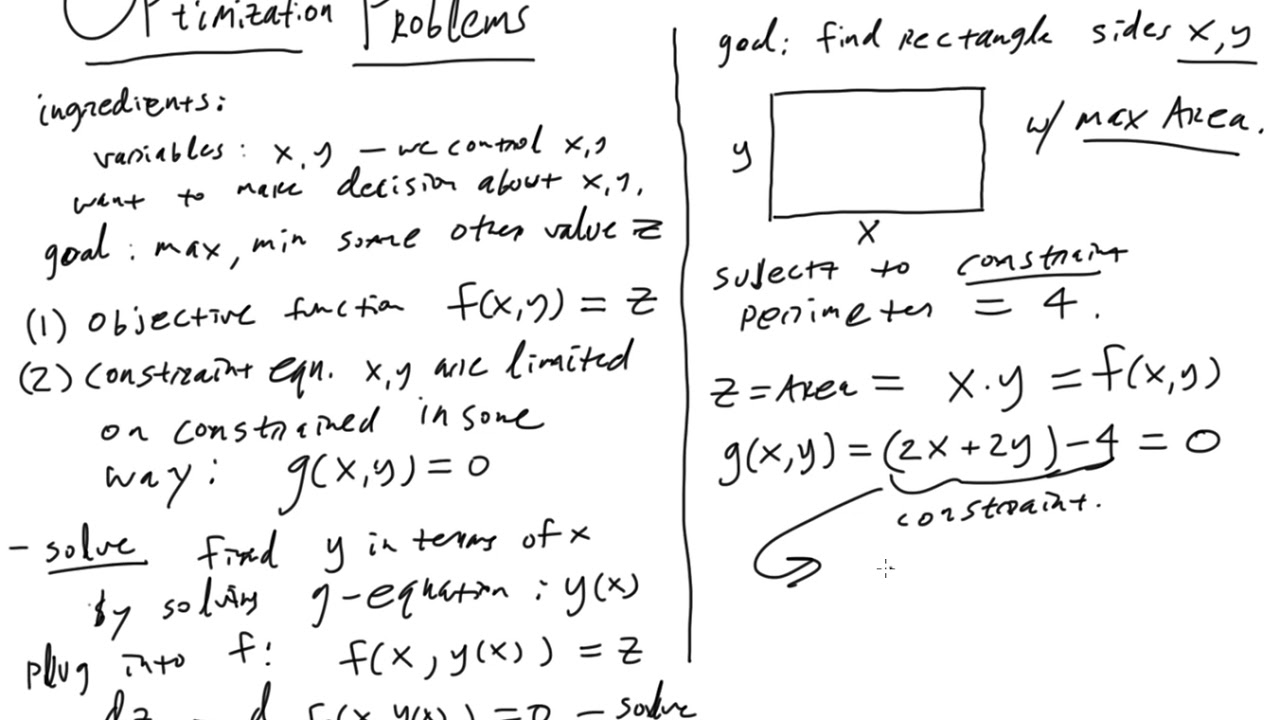 Optimization Problems
ingredients:
variables: x, y – we control x, y
want to make decision about x, y.
goal: max, min some other value z
(1) objective function f(x,y) = z
(2) constraint eqn. x, y are limited
or constrained in some
way: g(x,y) = 0
- solve find y in terms of x
by solving g-equation: y(x)
plug into f: f(x, y(x)) = z
dz = d f(x, y(x)) = 0 – solve
goal: find rectangle sides x, y
w/ max Area.
y
x
subject to constraint
perimeter = 4.
z = Area = x · y = f(x,y)
g(x,y) = (2x + 2y) – 4 = 0
constraint.